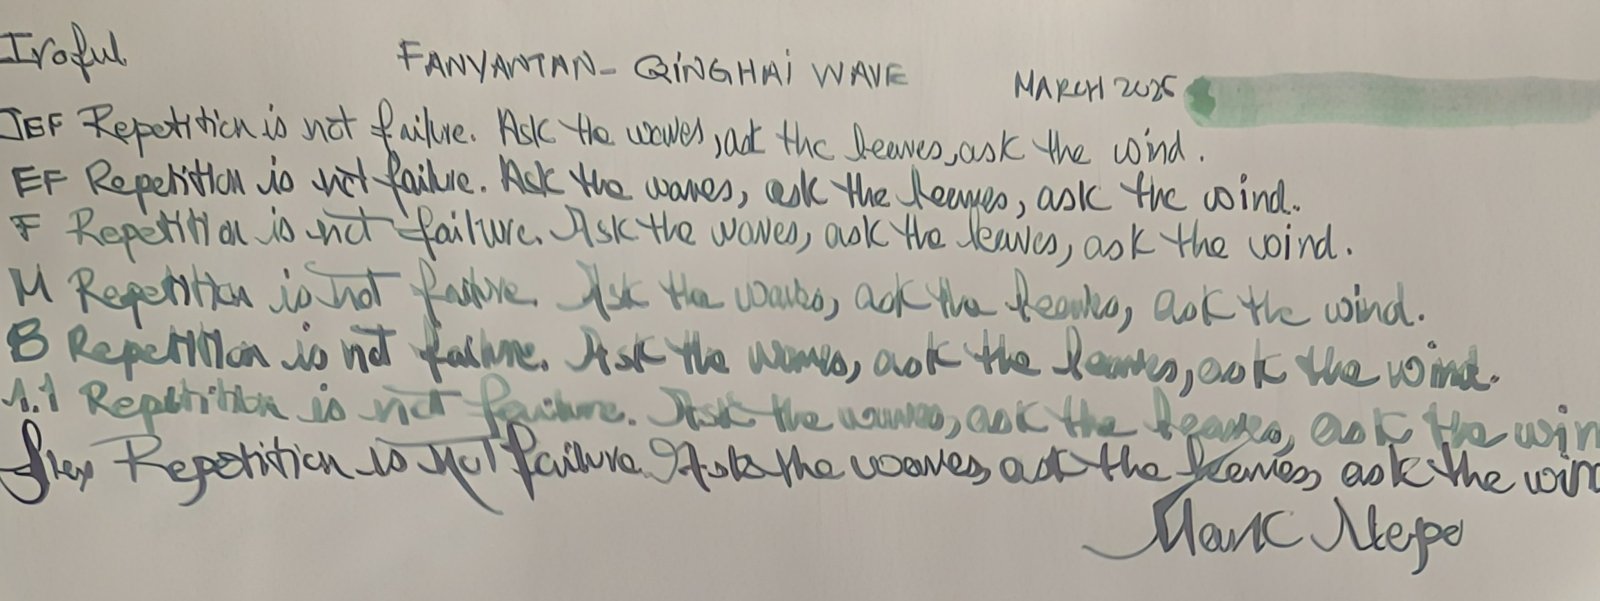 Iroful FANYANTAN- QINGHAI WAVE MARCH 2025
JEF Repetition is not failure. Ask the waves, ask the leaves, ask the wind.
EF Repetition is not failure. Ask the waves, ask the leaves, ask the wind.
F Repetition is not failure. Ask the waves, ask the leaves, ask the wind.
M Repetition is not failure. Ask the waves, ask the leaves, ask the wind.
B Repetition is not failure. Ask the waves, ask the leaves, ask the wind.
1.1 Repetition is not failure. Ask the waves, ask the leaves, ask the win
flex Repetition is not failure. Ask the waves, ask the leaves, ask the win
Mark Nepo